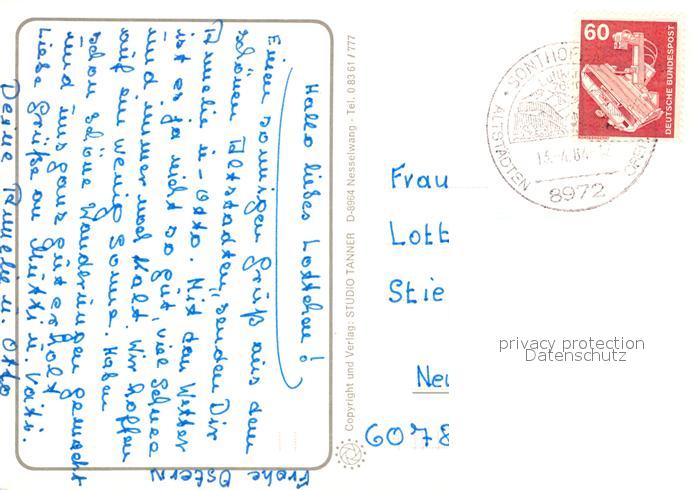 Hallo liebes Lottchen!
Einen sonnigen Grüß aus dem
schönen Altstädten, senden Dir
Amelie ü - Otto. Mit dem Wetter
ist es ja nicht so güt, viel Schnee
ünd immer noch kalt. Wir hoffen
aüf ein wenig Sonne. Haben
schon schöne Wanderüngen gemacht
ünd üns ganz güt erholt
Liebe Grüße an Mütti ü. Vati.
Deine Amelie ü. Otto
Frohe Ostern
Copyright und Verlag: STUDIO TANNER D-8964 Nesselwang - Tel. 0 83 61 / 777
60
DEUTSCHE BUNDESPOST
SONTHOF
ALTSTÄDTEN
8972
Frau
Lott
Stie
Neu
6078
privacy protection
Datenschutz